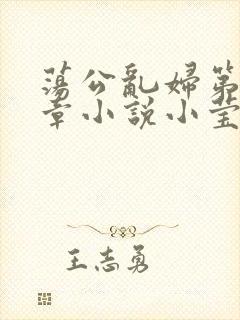 蕩公亂婦第
章小說小瑩
王志勇